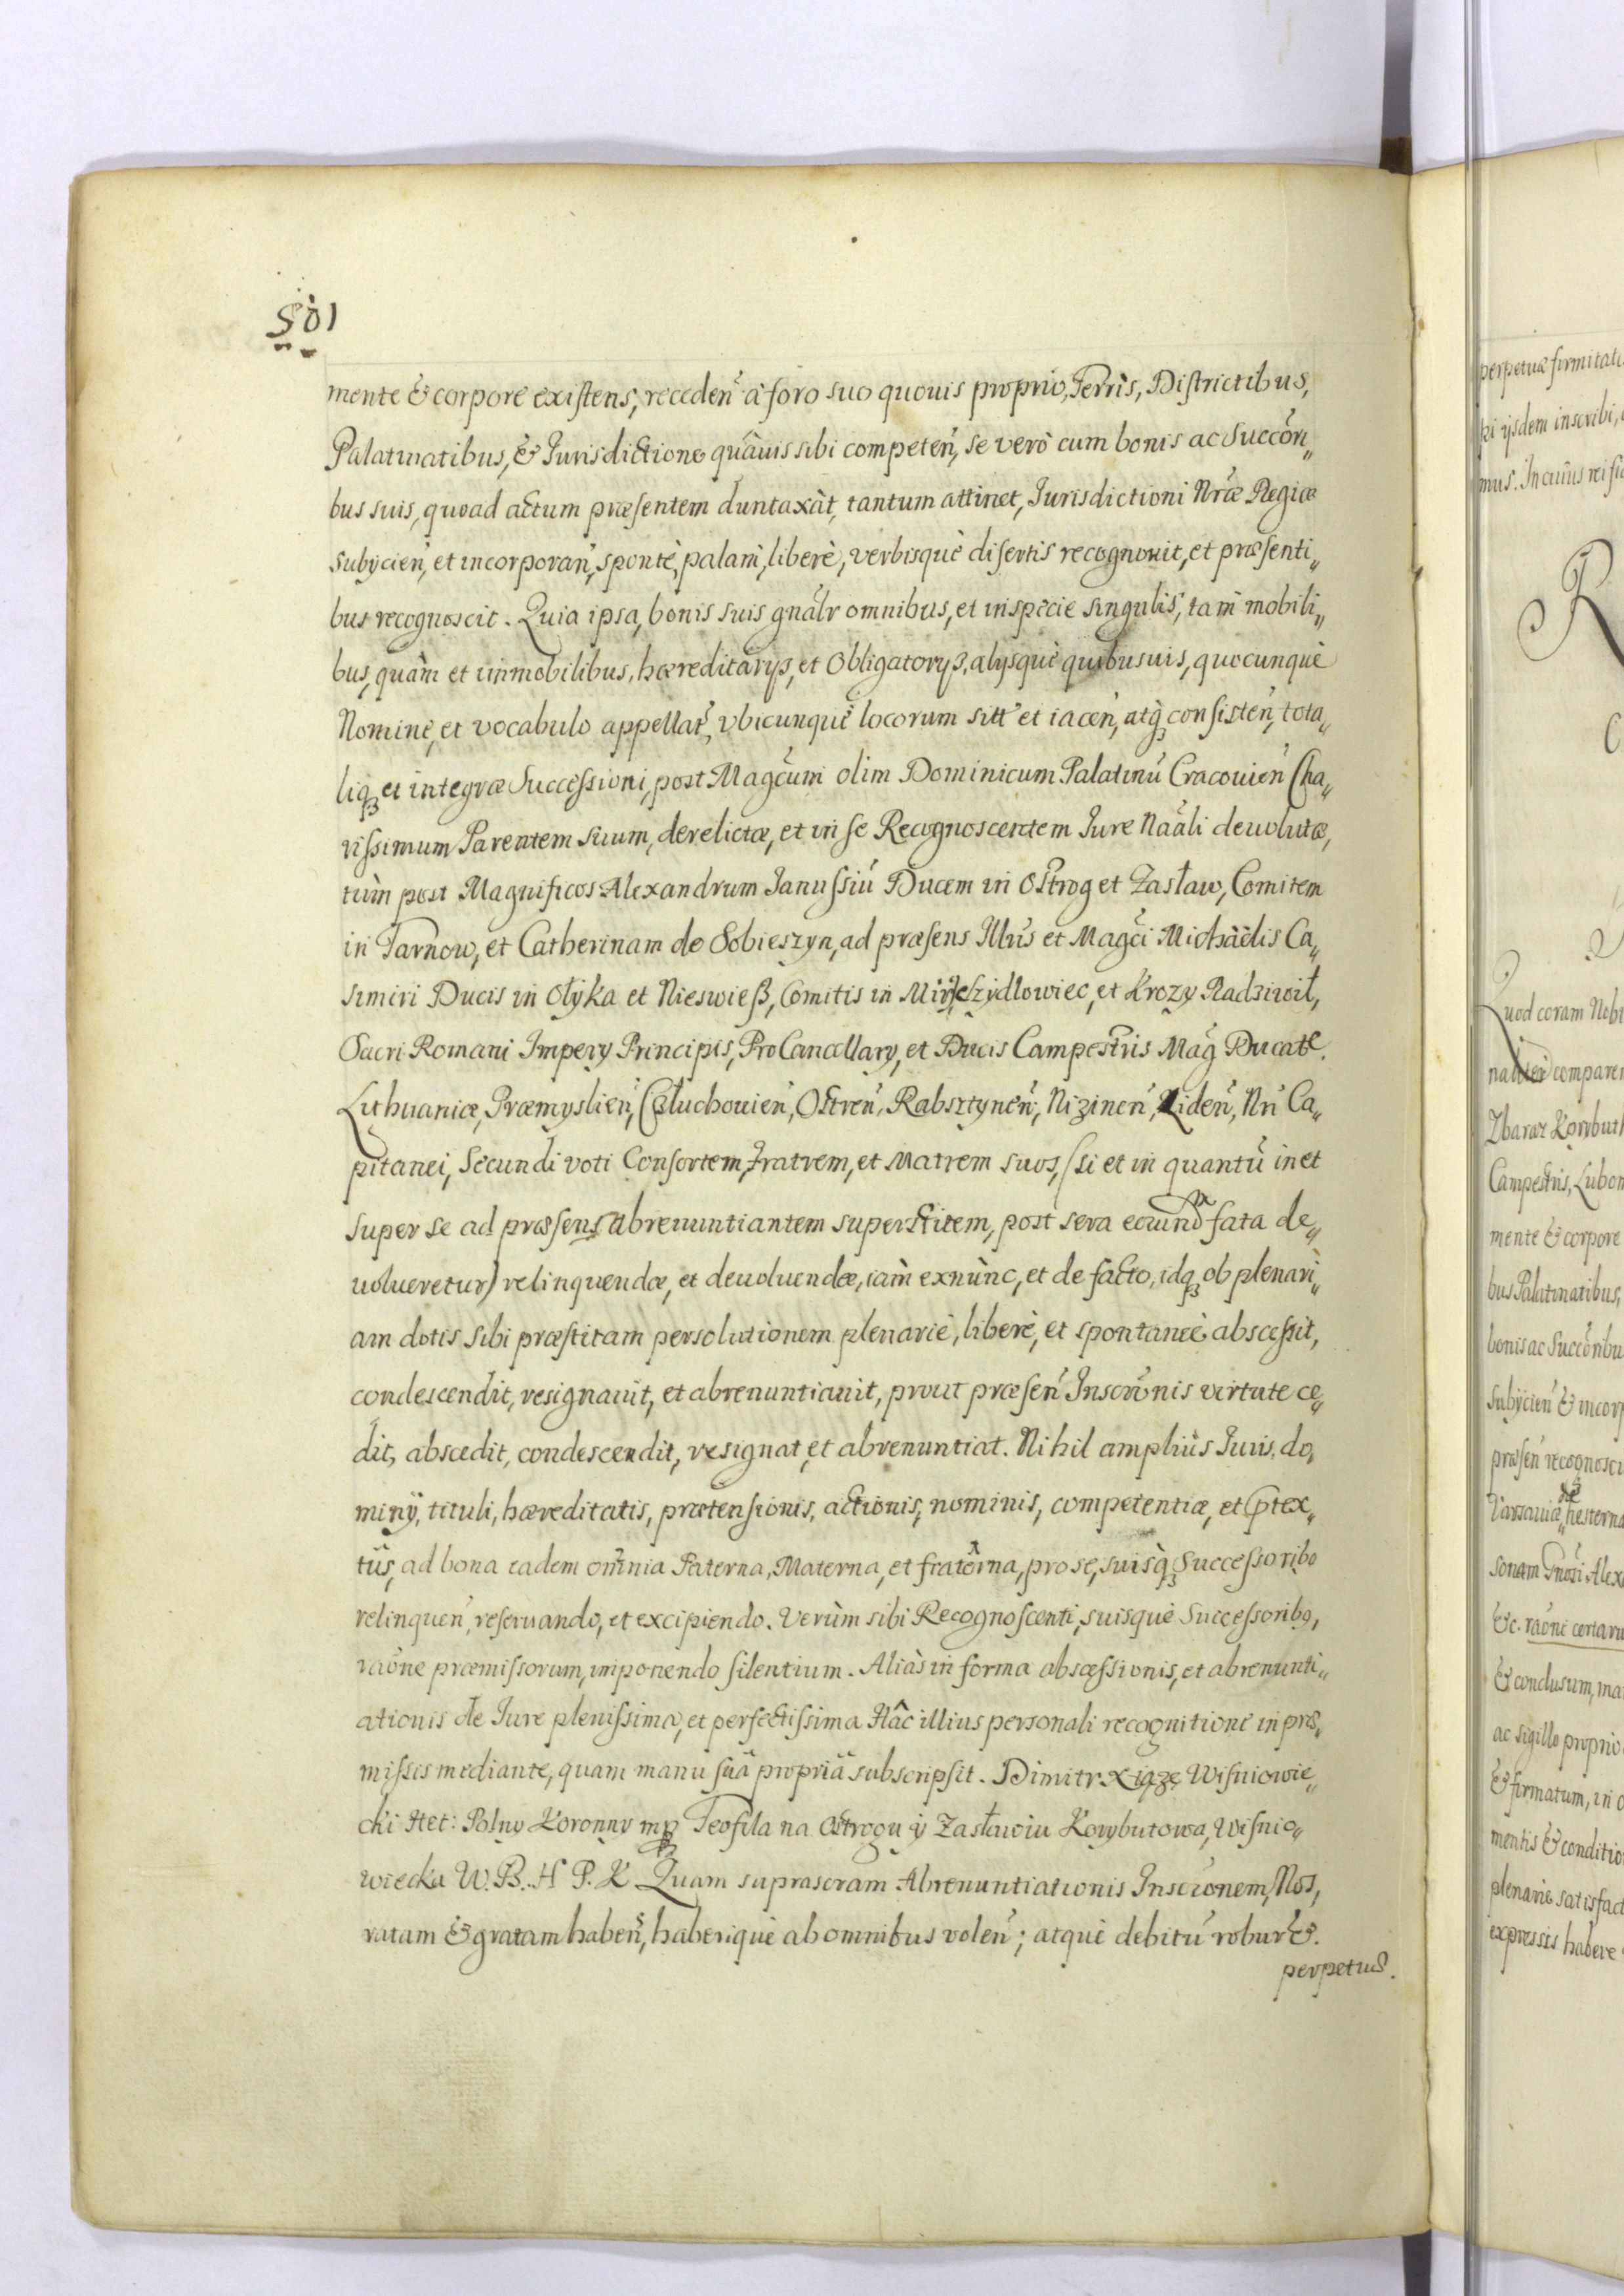 501
mente & corpore existens, receden̄ à foro suo quovis proprio, Terris, Districtibus,
Palatinatibus, & Jurisdictione quâvis sibi competen̄, se verò cum bonis ac Succōri„
bus suis, quoad actum præsentem duntaxàt, tantum attinet, Jurisdictioni Nr̄æ Regiæ
subÿcien̄, et incorporan̄, spontè, palam̀, liberè, verbisquè disertis recognovit, et præsenti„
bus recognoscit. Quia ipsa, bonis suis gnālr omnibus, et in specie singulis, tam̀ mobili„
bus, quam̀ et immobilibus, hæreditarÿs, et Obligatorÿs, alÿsquè quibusvis, quocunquè
Nominè, et vocabulo appellat̄, vbicunquè locorum sitt̄ et iacen̄, atq̨ consisten̄, tota„
liq̨ et integræ Successioni, post Magc̄um olim Dominicum Palatinū Cracovien̄ Cha„
rissimum Parentem suum, derelictæ, et in se Recognoscentem Jure Naāli devolutæ,
tùm post Magnificos Alexandrum Janussiū Ducem in Ostrog et Zasław, Comitem
in Tarnow, et Catherinam de Sobieszyn, ad præsens Illūs et Magc̄i Michaëlis Ca„
simiri Ducis in Ołÿka et Nieswieß, Comitis in Mir, Szÿdłowiec, et Krozy Radziwił,
Sacri Romani Imperÿ Principis, ProCancellarÿ, et Ducis Campestris Mag̃ Ducatē.
Lithuaniæ, Præmyslien̄, Człuchovien̄, Ostren̄, Rabsztynen̄, Nizinen̄, Liden̄, Nr̄i Ca„
pitanei, Secundi voti Consortem, Fratrem, et Matrem suos, (si et in quantū in et
super se ad præsens abrenuntiantem superstitem, post sera eorund̄ fata de„
volveretur) relinquendæ, et devoluendæ, iam̀ exnùnc, et de facto, idq̨ ob plenari„
am dotis sibi præstitam persolutionem plenariè, liberè, et spontaneè abscessit,
condescendit, resignavit, et abrenuntiavit, prout præsen̄ Inscrōnis virtute ce„
dit, abscedit, condescendit, resignat, et abrenuntiat. Nihil amplius Juris, do„
minÿ, tituli, hæreditatis, prætensionis, actionis, nominis, competentiæ, et p̄tex„
tûs, ad bona eadem om̄nia Paterna, Materna, et fraterna, pro se, suisq̨ Successoribꝯ
relinquen̄, reservando, et excipiendo. Verùm sibi Recognoscenti, suisquè Successoribꝯ,
raōne præmissorum, imponendo silentium. Aliàs in forma abscessionis, et abrenunti„
ationis de Jure plenissima, et perfectissima Hâc illius personali recognitionè in præ„
missis mediante, quam manu suâ propriâ subscripsit. Dimitr Xiąze Wisniowie„
cki Het: Polny Koronny mp̨ Teofila na Ostrogu ÿ Zasławiu Korybutowa, Wisnio„
wiecka W. B. H P. K Quam suprascram Abrenuntiationis Inscrōnem, Nos,
ratam & gratam haben̄, haberiquè ab omnibus volen̄; atquè debitū robur &.
perpetuæ.
perpetuæ firmitatis
mus. In cuius rei fi
R
Quod coram Nobi
comparen
Zbaraz Korybuth
Campestris, Lubom
mente & corpore
bus Palatinatibus,
bonis ac Succōribu
subÿcien̄ & incorp
præsen̄ recognosci
Varsaviæ hesterna
sonam
&c. raōne certaru
& conclusum, ma
ac sigillo proprio
& firmatum, in o
mentis & conditio
plenarie satisfact
expressis habere